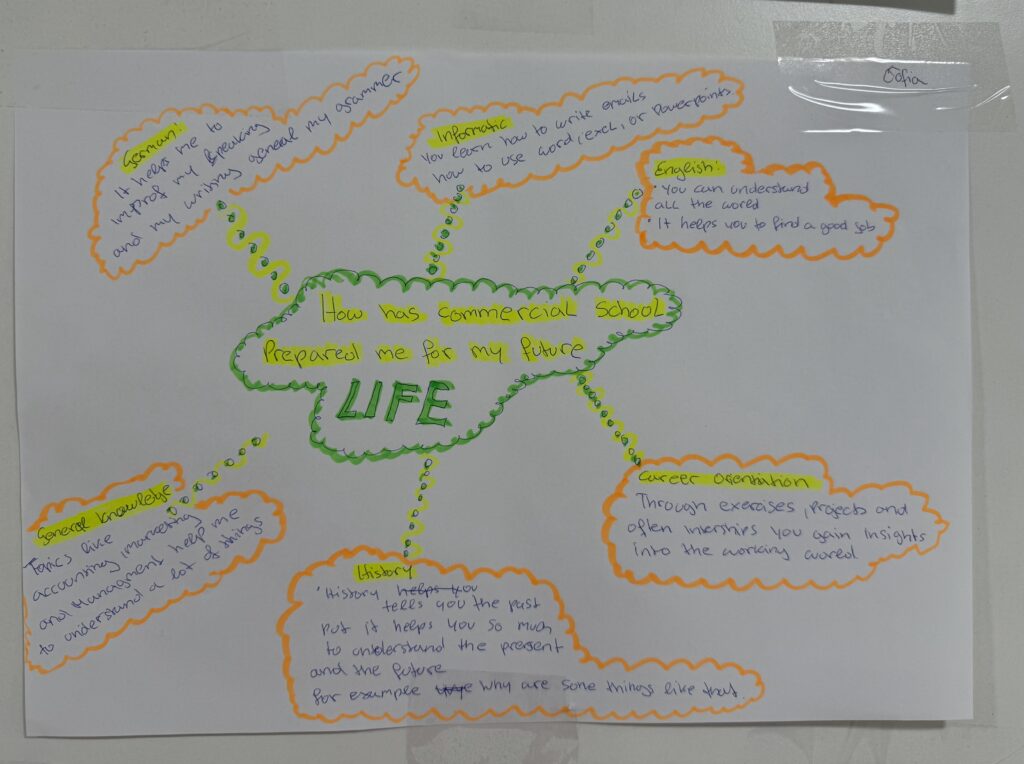 Sofia
German:
It helps me to
improf my speaking
and my writing general my grammer
Informatic
You learn how to write emails
how to use word, excl, or Powerpoints
English:
• You can understand
all the world
• It helps you to find a good job
How has commercial school
Prepared me for my future
LIFE
Career orientation
Through exercises, projects and
often interships you gain insights
into the working world
General knowledge
Topics like
accounting, marketing
and Managment help me
to understand a lot of things
History
• History helps you
tells you the past
put it helps you so much
to understand the present
and the future
for example why are some things like that.